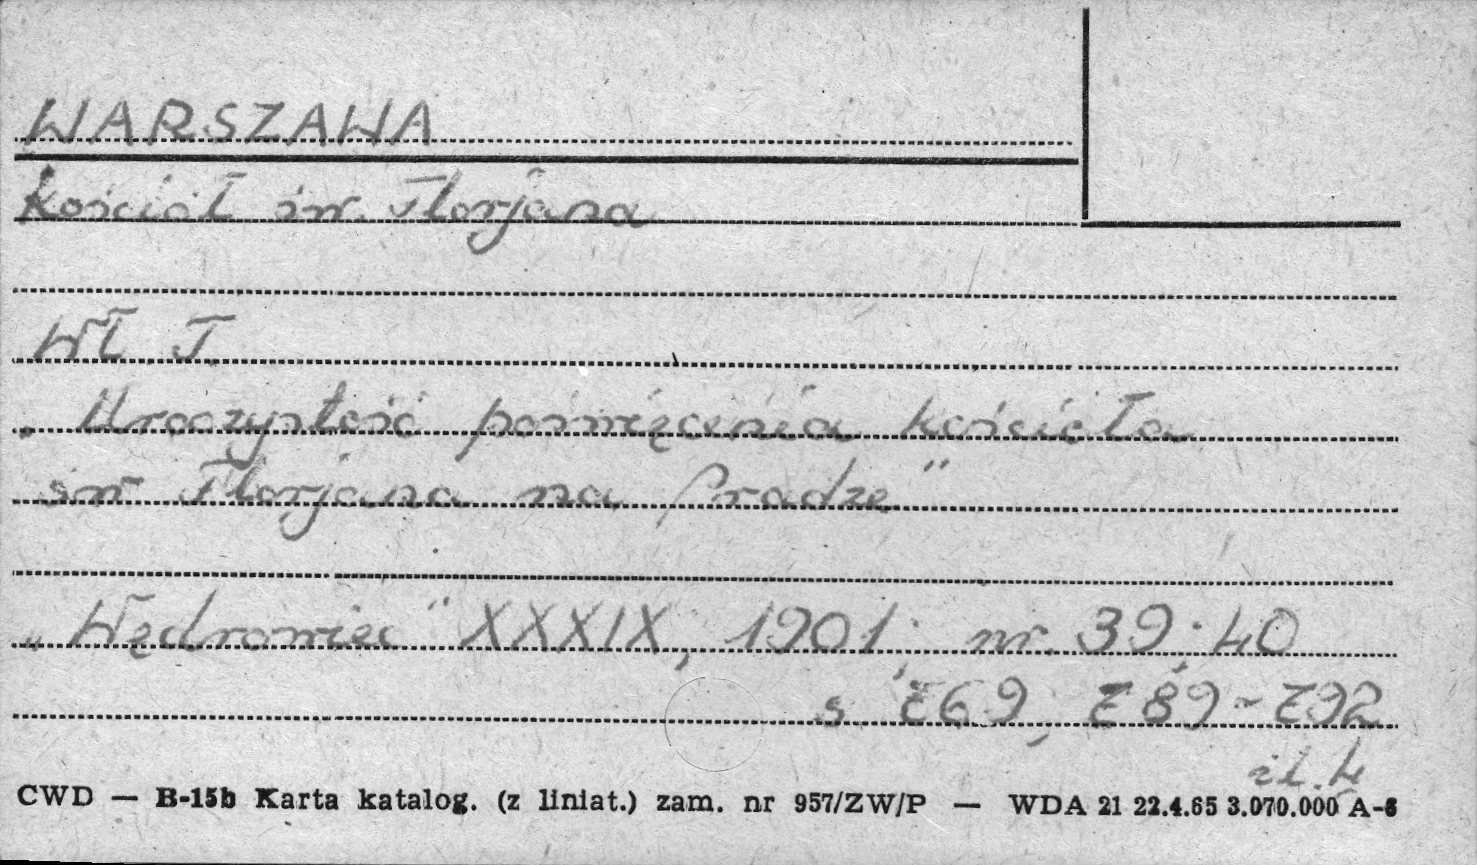 WARSZAWA
Kościół św. Florjana
Wł. T.
„Uroczystość poświęcenia kościoła
św Florjana na Pradze"
„Wędrowiec" XXXIX, 1901, nr. 39, 40
s. 769, 789-792
il. 4
CWD — B-15b Karta katalog. (z liniat.) zam. nr 957/ZW/P — WDA 21 22.4.65 3.070.000 A-6